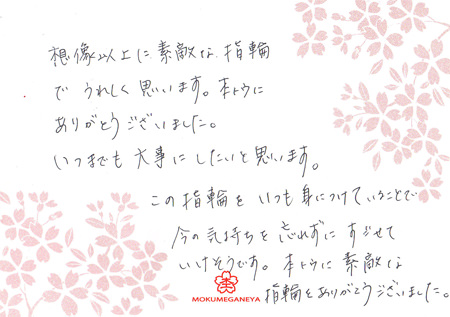 想像以上に素敵な指輪
で うれしく思います。本トウに
ありがとうございました。
いつまでも大事にしたいと思います。
この指輪をいつも身につけていることで
今の気持ちを忘れずにすごせて
いけそうです。本トウに素敵な
指輪をありがとうございました。
MOKUMEGANEYA